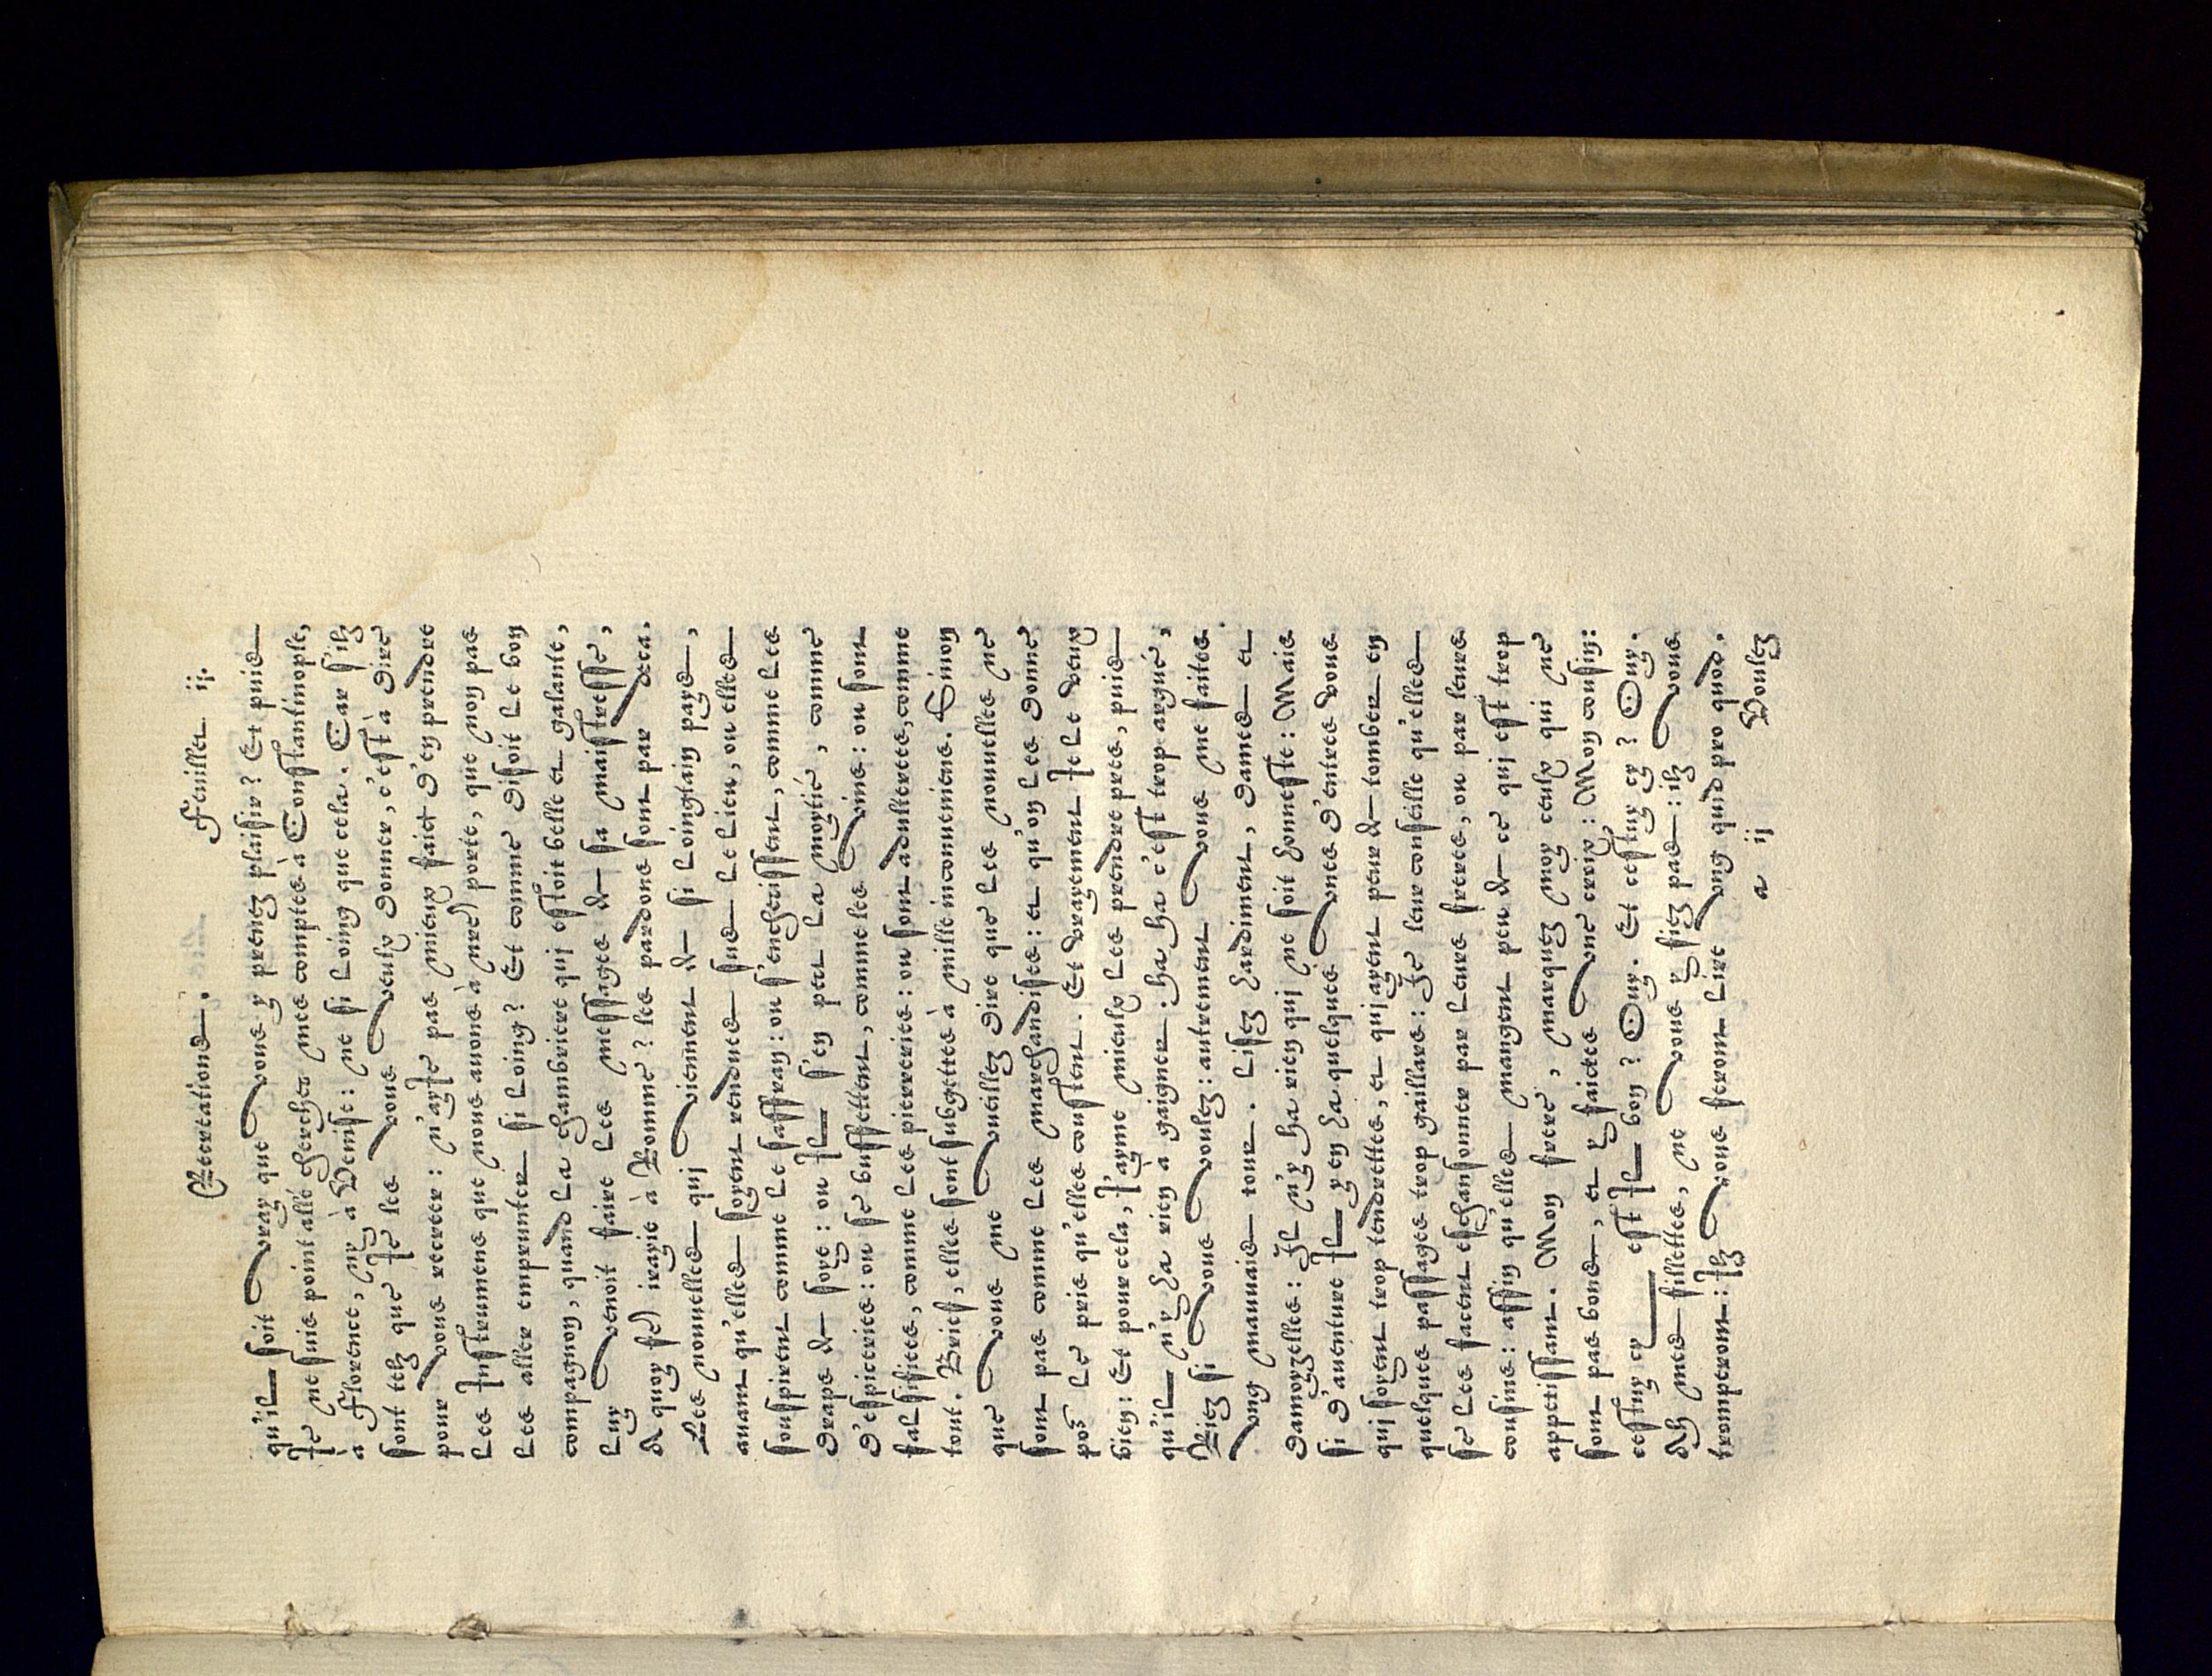 Recreations. Fueillet ij.
qu'il soit vray que vous y prenez plaisir? Et puis
Je ne suis point allé chercher mes comptes à Constantinople,
à Florence, ny à Venise: ne si loing que cela. Car s'ilz
sont telz que Je les vous veulx donner, c'est à dire
pour vous recreer: n'ayje pas mieux faict d'en prendre
les Instrumens que nous auons à nre porte, que non pas
les aller emprunter si loing? Et comme disoit le bon
compagnon, quand la chambriere qui estoit belle et galante,
luy venoit faire les messages de sa maistresse,
A quoy fere irayie à Romme? les pardons sont par deca.
Les nouuelles qui viennent de si loingtain pays,
auant qu'elles soyent rendues sus le lieu, ou elles
souspirent comme le saffran: ou s'encherissent, comme les
draps de soye: ou Il s'en pert la moytié, comme
d'espiceries: ou se buffettent, comme les vins: ou sont
falsifiees, comme les pierreries: ou sont adulterees, comme
tout. Brief, elles sont subgettes à mille inconueniens. Sinon
que vous me vueillez dire que les nouuelles ne
sont pas comme les marchandises: et qu'on les donne
por le pris qu'elles coustent. Et vrayement Je le veux
bien: Et pour cela, J'ayme mieulx les prendre pres, puis
qu'il n'y ha rien a gaigner: ha ha c'est trop argué,
Riez si vous voulez: autrement vous me faites
vng mauuais tour. Lisez hardiment, dames et
damoyzelles: Il n'y ha rien qui ne soit honneste: Mais
si d'auenture Il y en ha quelques vnes d'entre vous
qui soyent trop tendrettes, et qui ayent peur de tomber en
quelques passages trop gaillars: Je leur conseille qu'elles
se les facent eschansonner par leurs freres, ou par leurs
cousins: affin qu'elles mangent peu de ce qui est trop
appetissant. Mon frere, marquez moy ceulx qui ne
sont pas bons, et y faictes vne croix: Mon cousin:
cestuy cy est Il bon? Ouy. Et cestuy cy? Ouy.
Ah mes fillettes, ne vous y fiez pas: ilz vous
tromperont: Ilz vous feront lire vng quid pro quod.
a ij Voulez